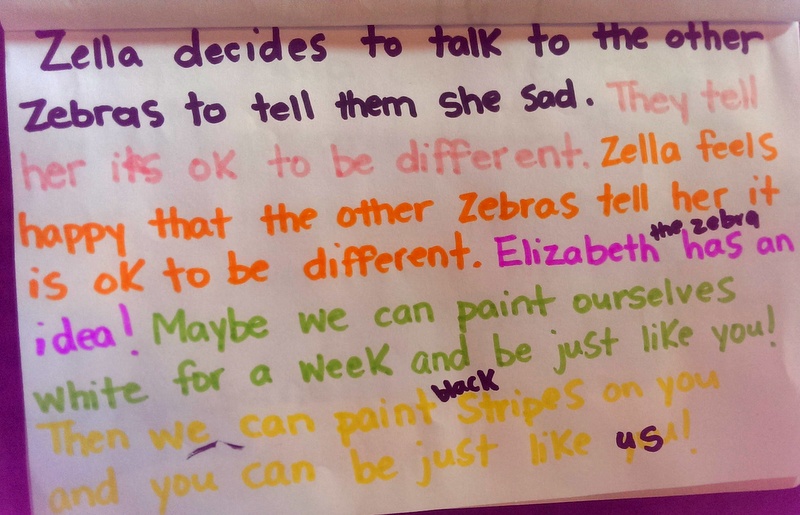 Zella decides to talk to the other
Zebras to tell them she sad. They tell
her its ok to be different. Zella feels
happy that the other Zebras tell her it
is ok to be different. Elizabeth the zebra has an
idea! Maybe we can paint ourselves
white for a week and be just like you!
Then we can paint black Stripes on you
and you can be just like us!